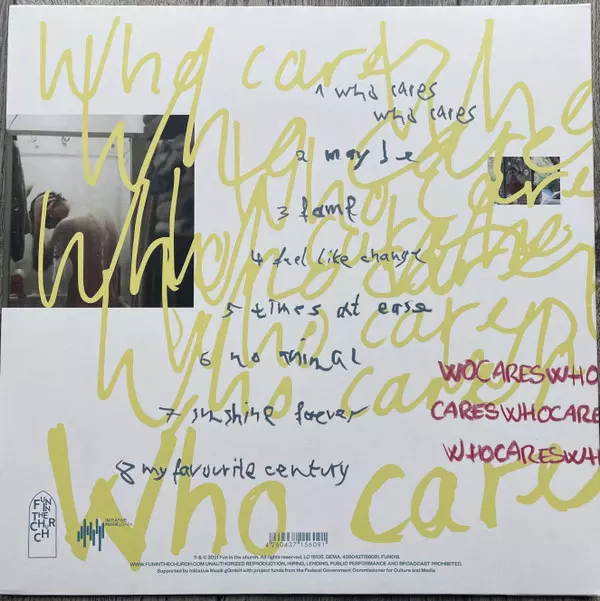 Who cares who
Who care
Who care
Who care
Who care
Who care
1 who cares
who cares
2 maybe
3 famf
4 feel like change
5 times at ease
6 no animal
7 sunshine forever
8 my favourite century
WOCARESWHO
CARESWHOCARE
WHOCARESWH
FUN
IN
THE
CHURCH
INITIATIVE
4260437156091
℗ & © 2021 Fun in the church. All rights reserved. LC 15105, GEMA, 4260437156091, FUN019.
WWW.FUNINTHECHURCH.COM UNAUTHORIZED REPRODUCTION, HIRING, LENDING, PUBLIC PERFORMANCE AND BROADCAST PROHIBITED.
Supported by Initiative Musik gGmbH with project funds from the Federal Government Commissioner for Culture and Media